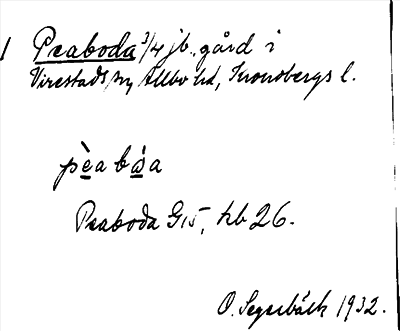 1 Peaboda 3/4 jb. gård i
Virestads sn, Allbo hd, Kronobergs l.
pèabåsa
Peaboda G15, hb 26.
O. Segerbäck 1932.